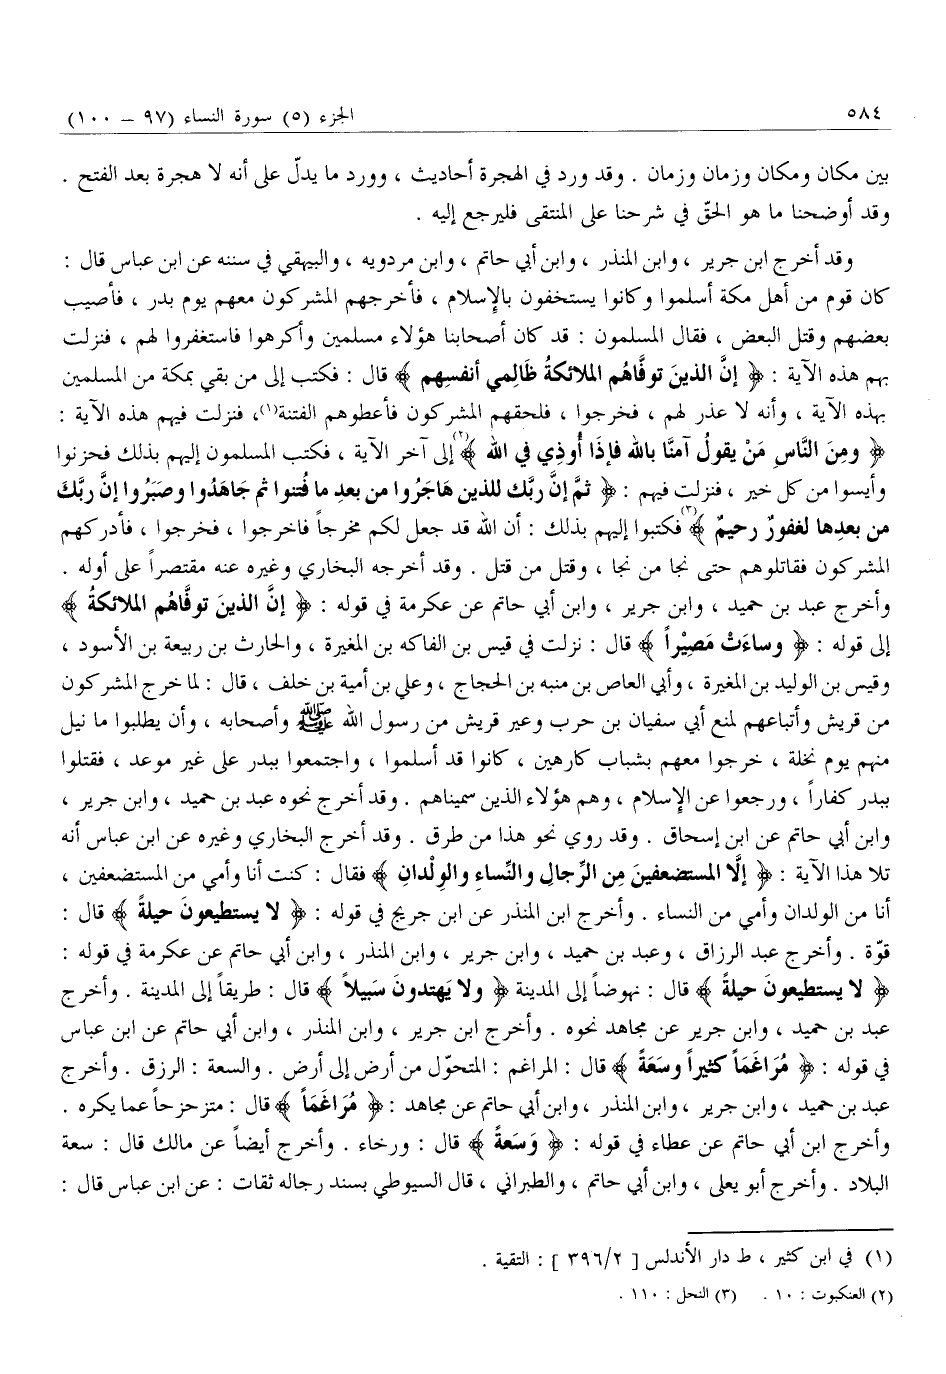 ٥٨٤
الجزء (٥) سورة النساء (٩٧ – ١٠٠)
بين مكان ومكان وزمان وزمان . وقد ورد في الهجرة أحاديث ، وورد ما يدلّ على أنه لا هجرة بعد الفتح .
وقد أوضحنا ما هو الحقّ في شرحنا على المنتقى فليرجع إليه .
وقد أخرج ابن جرير ، وابن المنذر ، وابن أبي حاتم ، وابن مردويه ، والبيهقي في سننه عن ابن عباس قال :
كان قوم من أهل مكة أسلموا وكانوا يستخفون بالإسلام ، فأخرجهم المشركون معهم يوم بدر ، فأصيب
بعضهم وقتل البعض ، فقال المسلمون : قد كان أصحابنا هؤلاء مسلمين وأكرهوا فاستغفروا لهم ، فنزلت
بهم هذه الآية : ﴿ إنَّ الذينَ توفَّاهُم الملائكةُ ظَالِمي أنفسهم ﴾ قال : فكتب إلى من بقي بمكة من المسلمين
بهذه الآية ، وأنه لا عذر لهم ، فخرجوا ، فلحقهم المشركون فأعطوهم الفتنة(١)، فنزلت فيهم هذه الآية :
﴿ ومِنَ النَّاسِ مَنْ يقولُ آمنَّا بالله فإذَا أُوذِي في الله ﴾(٢) إلى آخر الآية ، فكتب المسلمون إليهم بذلك فحزنوا
وأيسوا من كل خير ، فنزلت فيهم : ﴿ ثمَّ إنَّ ربَّك للذين هَاجَرُوا من بعدِ ما فُتنوا ثم جَاهَدُوا وصبَرُوا إنَّ ربَّكَ
من بعدِها لغفورٌ رحيمٌ ﴾(٣) فكتبوا إليهم بذلك : أن الله قد جعل لكم مخرجاً فاخرجوا ، فخرجوا ، فأدركهم
المشركون فقاتلوهم حتى نجا من نجا ، وقتل من قتل . وقد أخرجه البخاري وغيره عنه مقتصراً على أوله .
وأخرج عبد بن حميد ، وابن جرير ، وابن أبي حاتم عن عكرمة في قوله : ﴿ إنَّ الذينَ توفَّاهُم الملائكةُ ﴾
إلى قوله : ﴿ وساءَتْ مَصِيْراً ﴾ قال : نزلت في قيس بن الفاكه بن المغيرة ، والحارث بن ربيعة بن الأسود ،
وقيس بن الوليد بن المغيرة ، وأبي العاص بن منبه بن الحجاج ، وعلي بن أمية بن خلف ، قال : لما خرج المشركون
من قريش وأتباعهم لمنع أبي سفيان بن حرب وعير قريش من رسول الله ﷺ وأصحابه ، وأن يطلبوا ما نيل
منهم يوم نخلة ، خرجوا معهم بشباب كارهين ، كانوا قد أسلموا ، واجتمعوا ببدر على غير موعد ، فقتلوا
ببدر كفاراً ، ورجعوا عن الإسلام ، وهم هؤلاء الذين سميناهم . وقد أخرج نحوه عبد بن حميد ، وابن جرير ،
وابن أبي حاتم عن ابن إسحاق . وقد روي نحو هذا من طرق . وقد أخرج البخاري وغيره عن ابن عباس أنه
تلا هذا الآية : ﴿ إلَّا المستضعفينَ مِن الرِّجالِ والنِّساءِ والوِلْدانِ ﴾ فقال : كنت أنا وأمي من المستضعفين ،
أنا من الولدان وأمي من النساء . وأخرج ابن المنذر عن ابن جريج في قوله : ﴿ لا يستطيعونَ حيلةً ﴾ قال :
قوّة . وأخرج عبد الرزاق ، وعبد بن حميد ، وابن جرير ، وابن المنذر ، وابن أبي حاتم عن عكرمة في قوله :
﴿ لا يستطيعونَ حيلةً ﴾ قال : نهوضاً إلى المدينة ﴿ ولا يَهتدونَ سَبيلاً ﴾ قال : طريقاً إلى المدينة . وأخرج
عبد بن حميد ، وابن جرير عن مجاهد نحوه . وأخرج ابن جرير ، وابن المنذر ، وابن أبي حاتم عن ابن عباس
في قوله : ﴿ مُرَاغَمَاً كثيراً وسَعَةً ﴾ قال : المراغم : المتحوّل من أرض إلى أرض . والسعة : الرزق . وأخرج
عبد بن حميد ، وابن جرير ، وابن المنذر ، وابن أبي حاتم عن مجاهد : ﴿ مُرَاغَمَاً ﴾ قال : متزحزحاً عما يكره .
وأخرج ابن أبي حاتم عن عطاء في قوله : ﴿ وَسَعةً ﴾ قال : ورخاء . وأخرج أيضاً عن مالك قال : سعة
البلاد . وأخرج أبو يعلى ، وابن أبي حاتم ، والطبراني ، قال السيوطي بسند رجاله ثقات : عن ابن عباس قال :
(١) في ابن كثير ، ط دار الأندلس [ ٣٩٦/٢ ] : التقية .
(٢) العنكبوت : ١٠ . (٣) النحل : ١١٠ .